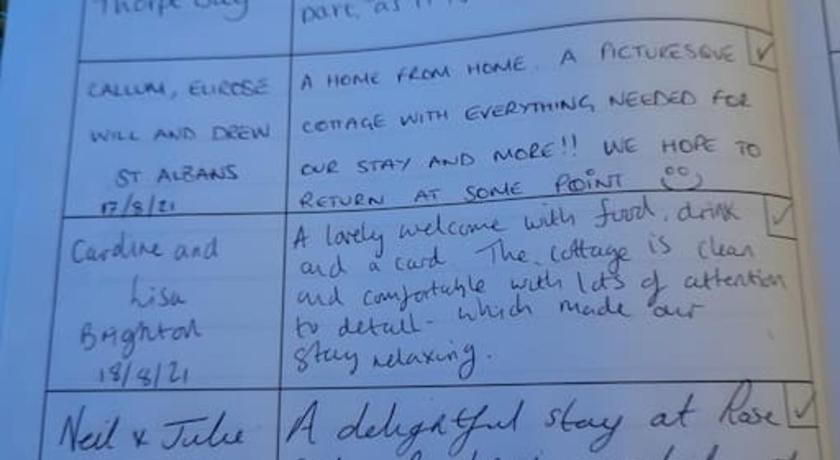 Thorpe Bay
part, as it
CALLUM, ELROSE
WILL AND DREW
ST ALBANS
17/8/21
A HOME FROM HOME. A PICTURESQUE
COTTAGE WITH EVERYTHING NEEDED FOR
OUR STAY AND MORE!! WE HOPE TO
RETURN AT SOME POINT
Caroline and
Lisa
Brighton
18/8/21
A lovely welcome with food, drink
and a card The cottage is clean
and comfortable with lots of attention
to detail - which made our
stay relaxing.
Neil & Julie
A delightful stay at Rose